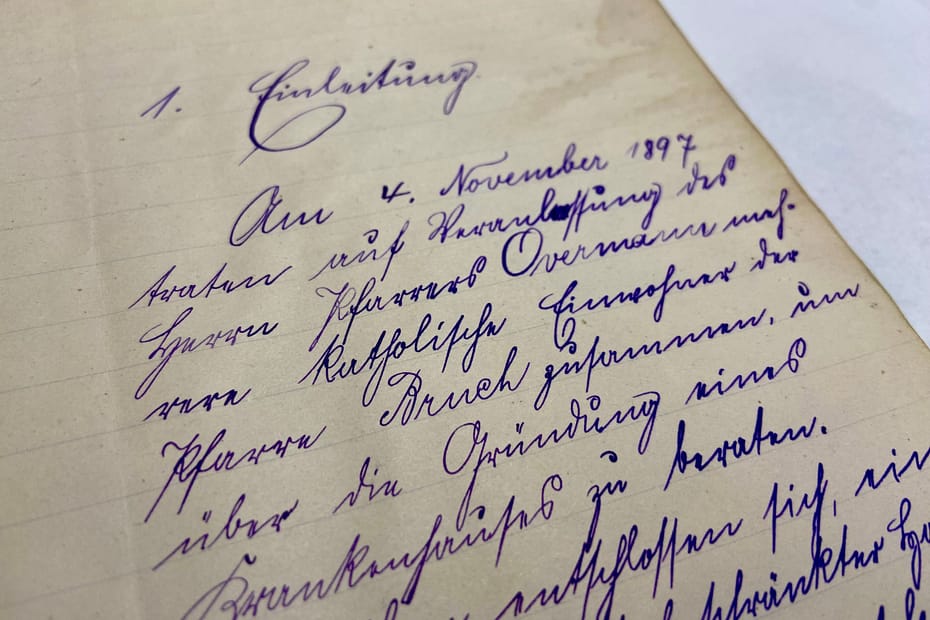 1. Einleitung.
Am 4. November 1897
traten auf Veranlassung des
Herrn Pfarrers Overmann meh-
rere katholische Einwohner der
Pfarre Bruch zusammen, um
über die Gründung eines
Krankenhauses zu beraten.
entschlossen sich, ein